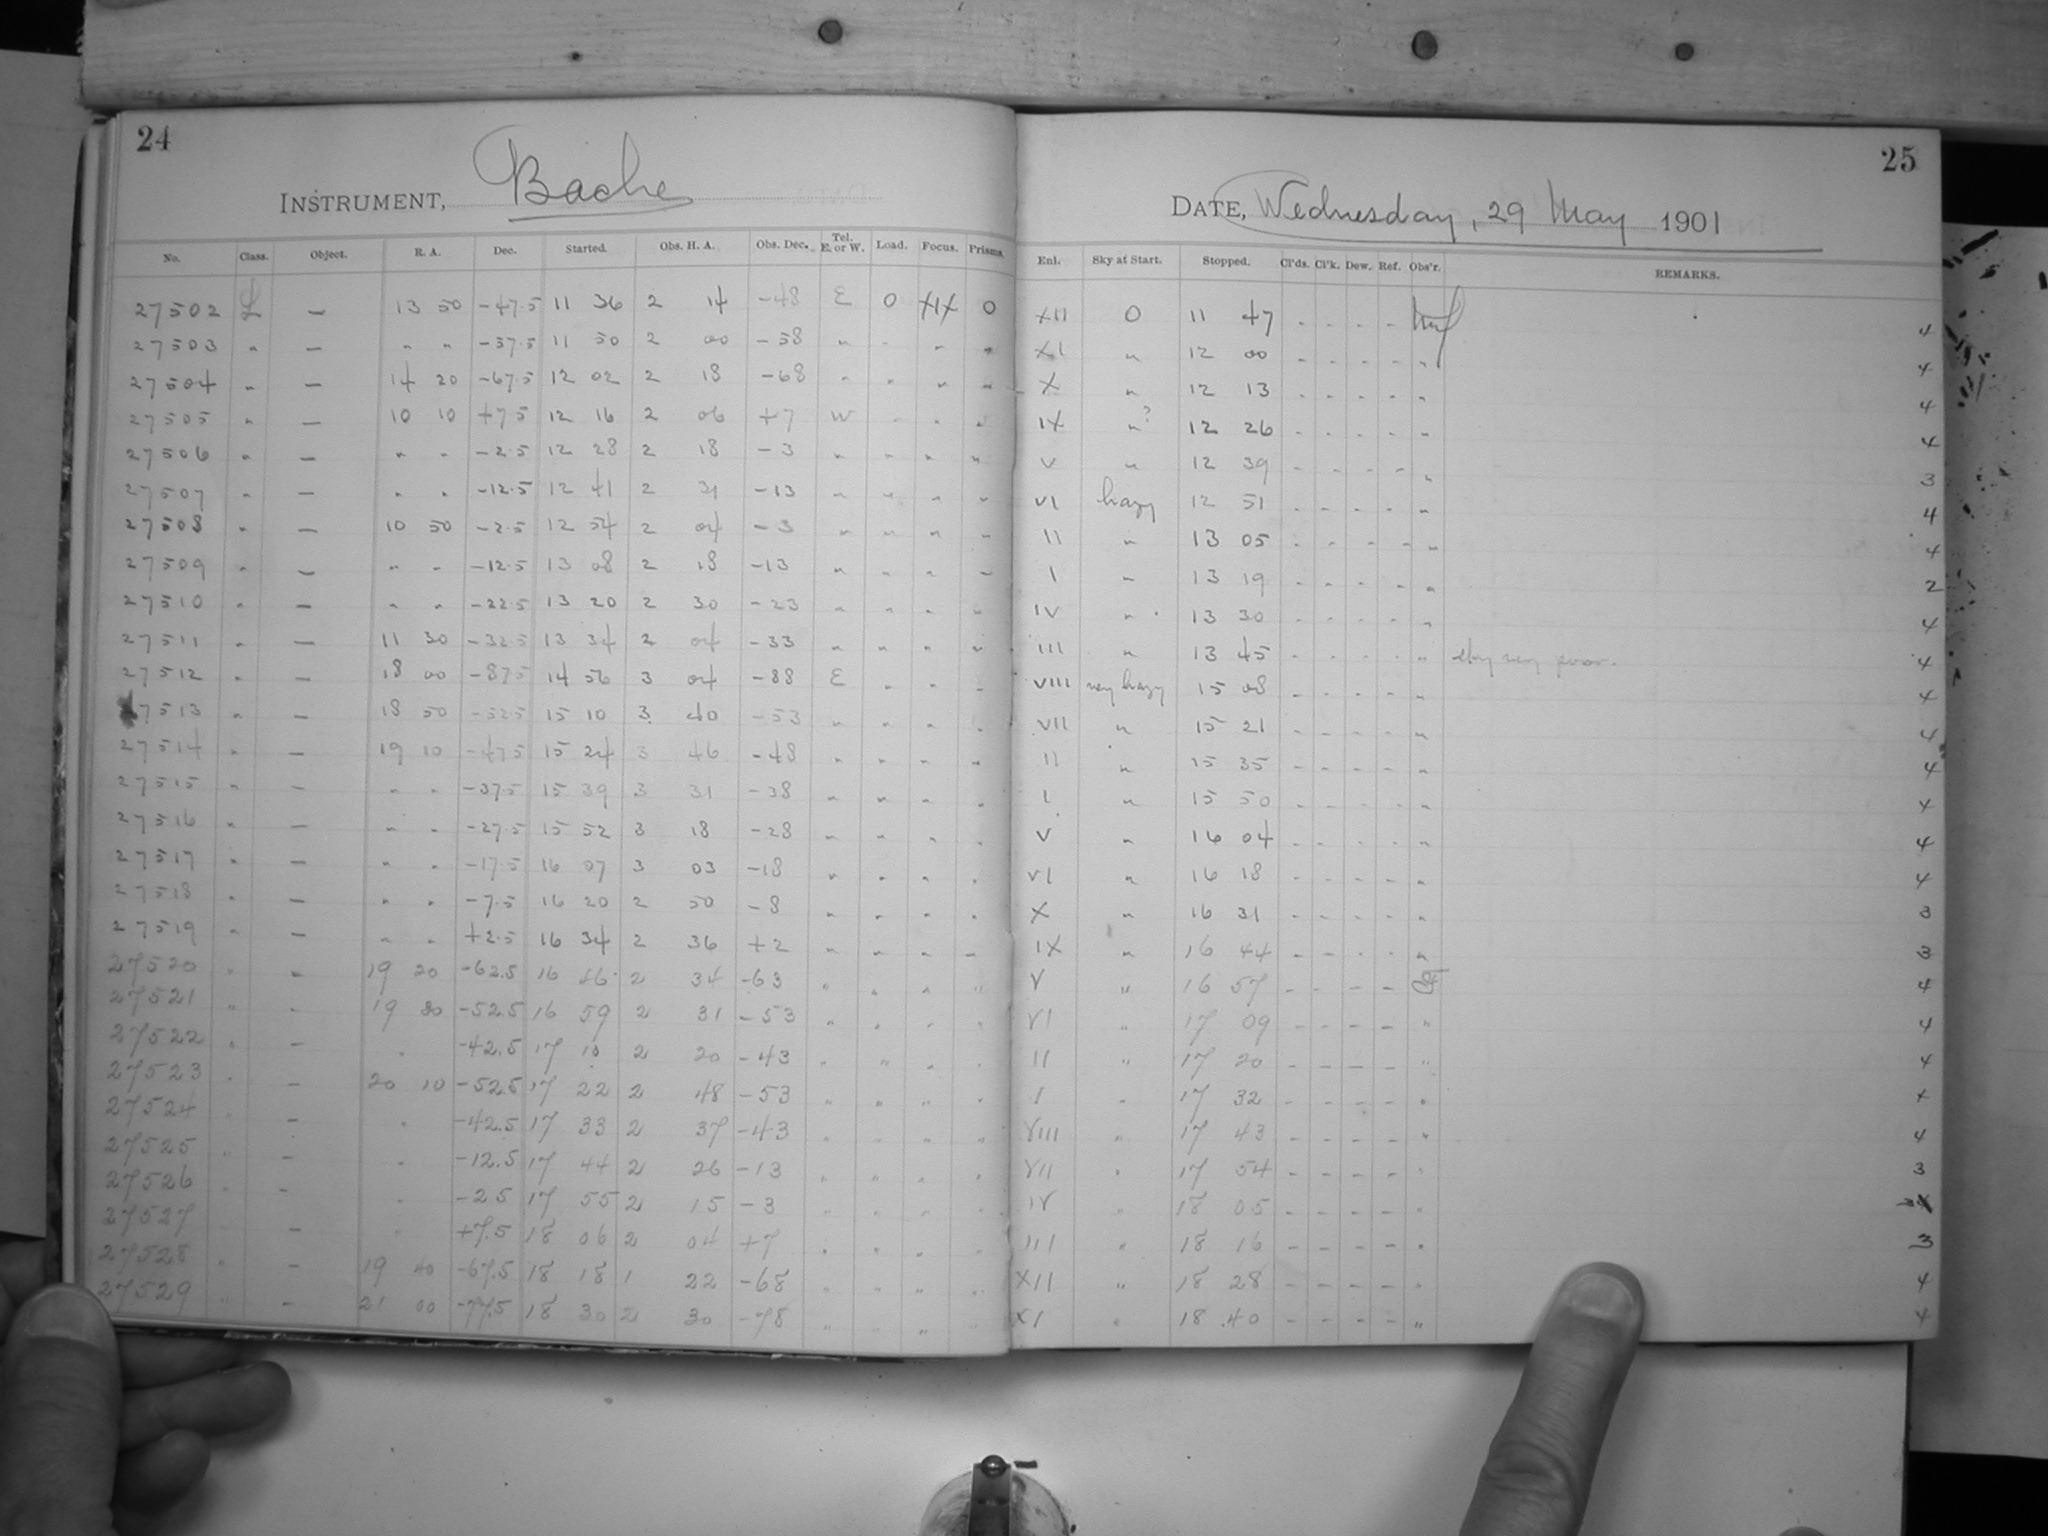 24
INSTRUMENT, Bache
No. Class. Object. R. A. Dec. Started. Obs. H. A. Obs. Dec. Tel. E. or W. Load. Focus. Prisms.
27502 L — 13 50 -47.5 11 36 2 14 -48 E 0 XIX 0
27503 " — " " -57.5 11 50 2 00 -58 " " " "
27504 " — 14 20 -67.5 12 02 2 18 -68 " " " "
27505 " — 10 10 +7.5 12 16 2 06 +7 W " " "
27506 " — " " -2.5 12 28 2 18 -3 " " " "
27507 " — " " -12.5 12 41 2 31 -13 " " " "
27508 " — 10 50 -2.5 12 54 2 04 -3 " " " "
27509 " — " " -12.5 13 08 2 18 -13 " " " "
27510 " — " " -22.5 13 20 2 30 -23 " " " "
27511 " — 11 30 -32.5 13 34 2 04 -33 " " " "
27512 " — 18 00 -87.5 14 56 3 04 -88 E " " "
27513 " — 18 50 -52.5 15 10 3 40 -53 " " " "
27514 " — 19 10 -47.5 15 24 3 46 -48 " " " "
27515 " — " " -37.5 15 39 3 31 -38 " " " "
27516 " — " " -27.5 15 52 3 18 -28 " " " "
27517 " — " " -17.5 16 07 3 03 -18 " " " "
27518 " — " " -7.5 16 20 2 50 -8 " " " "
27519 " — " " +2.5 16 34 2 36 +2 " " " "
27520 " — 19 20 -62.5 16 46 2 34 -63 " " " "
27521 " — 19 30 -52.5 16 59 2 31 -53 " " " "
27522 " — " -42.5 17 10 2 20 -43 " " " "
27523 " — 20 10 -52.5 17 22 2 48 -53 " " " "
27524 " — " -42.5 17 33 2 37 -43 " " " "
27525 " — " -12.5 17 44 2 26 -13 " " " "
27526 " — " -2.5 17 55 2 15 -3 " " " "
27527 — " +7.5 18 06 2 04 +7 " " " "
27528 " — 19 40 -67.5 18 18 1 22 -68 " " " "
27529 " — 21 00 -77.5 18 30 2 30 -78 " " " "
25
DATE, Wednesday, 29 May 1901
Enl. Sky at Start. Stopped. Cl'ds. Cl'k. Dew. Ref. Obs'r. REMARKS.
XII 0 11 47 - - - - 4
XI " 12 00 - - - - " 4
X " 12 13 - - - - " 4
IX "? 12 26 - - - - " 4
V " 12 39 - - - - " 3
VI hazy 12 51 - - - - " 4
II " 13 05 - - - - " 4
I " 13 19 - - - - " 2
IV " 13 30 - - - - " 4
III " 13 45 - - - - " sky very poor. 4
VIII very hazy 15 08 - - - - " 4
VII " 15 21 - - - - " 4
II " 15 35 - - - - " 4
I " 15 50 - - - - " 4
V " 16 04 - - - - " 4
VI " 16 18 - - - - " 4
X " 16 31 - - - - " 3
IX " 16 44 - - - - " 3
V " 16 57 - - - - 4
VI " 17 09 - - - - " 4
II " 17 20 - - - - " 4
I " 17 32 - - - - " 4
VIII " 17 43 - - - - " 4
VII " 17 54 - - - - " 3
IV " 18 05 - - - - " 3
III " 18 16 - - - - " 3
XII " 18 28 - - - - " 4
XI " 18 40 - - - - " 4